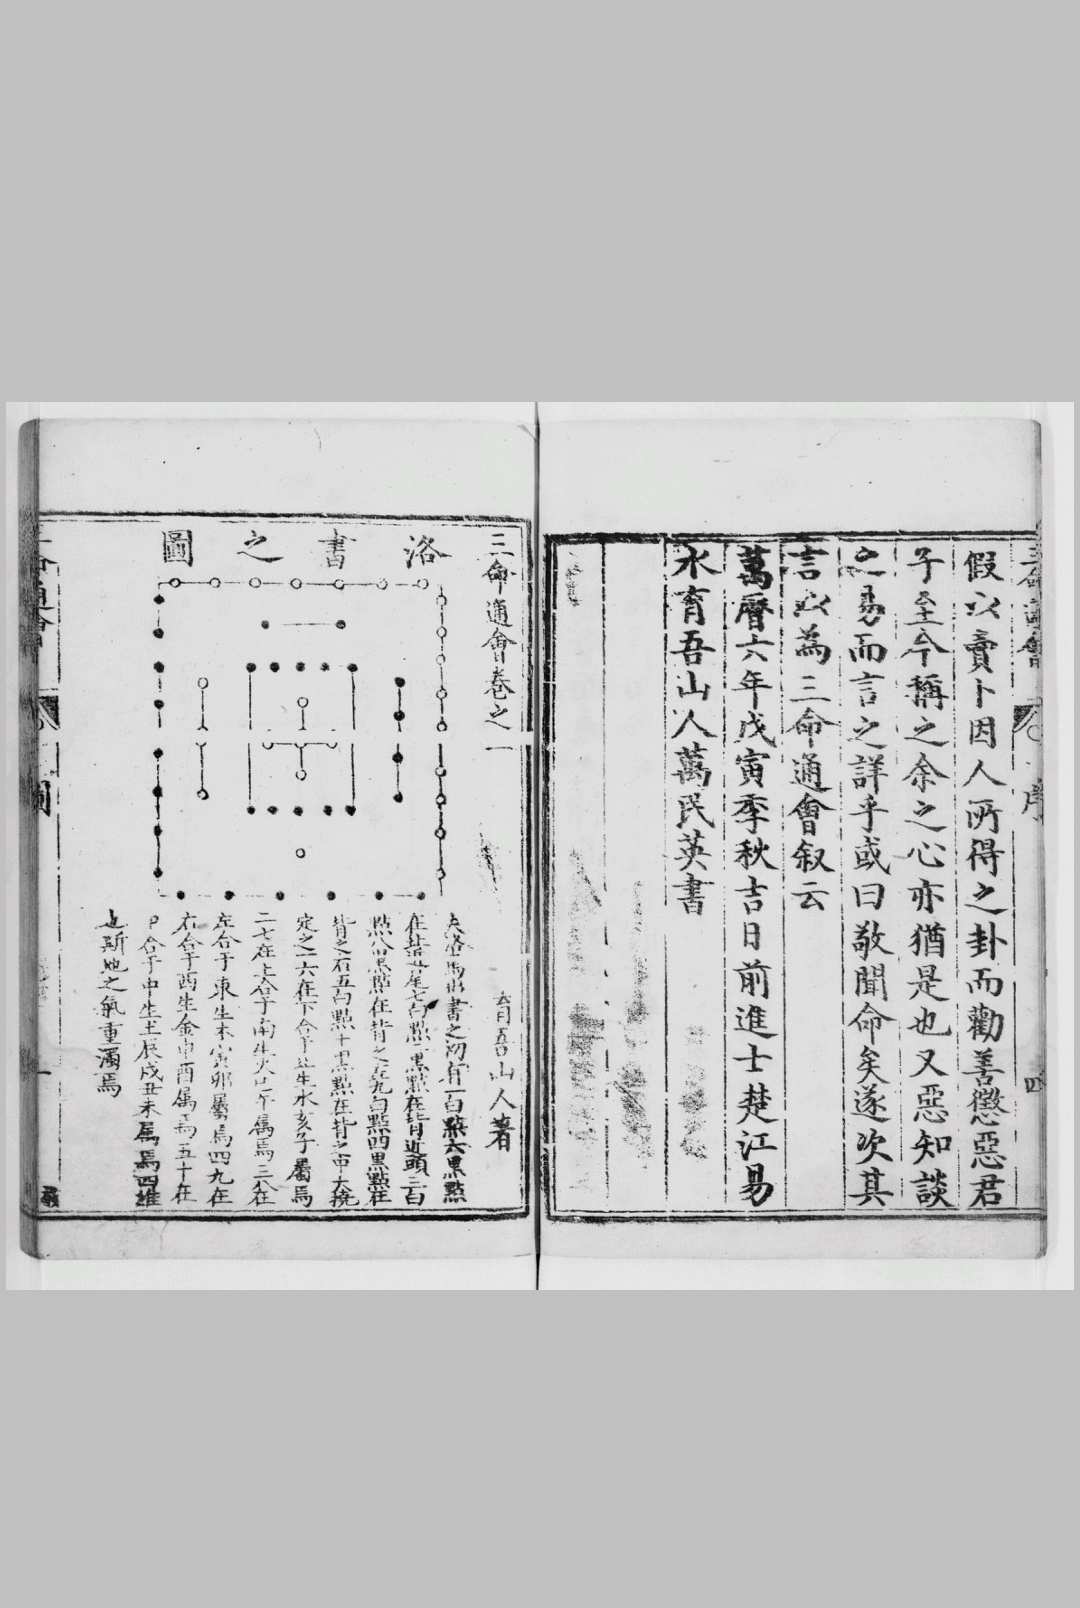 假以賣卜因人所得之卦而勸善懲惡君
子至今稱之余之心亦猶是也又惡知談
之易而言之詳乎或曰敬聞命矣遂次其
言以為三命通會叙云
萬曆六年戊寅季秋吉日前進士楚江易
水育吾山人萬民英書
三命通會卷之一
育吾山人著
洛書之圖
夫洛馬出書之初有一白點六黑點
在背近尾七白點二黑點在背近頭三白
點八黑點在背之左九白點四黑點在
背之右五白點十黑點在背之中大撓
定之一六在下合于北生水亥子屬焉
二七在上合于南生火巳午属焉三八在
左合于東生木寅卯屬焉四九在
右合于西生金申酉属焉五十在
中合于中生土辰戌丑未属焉四維
也斯地之氣重濁焉